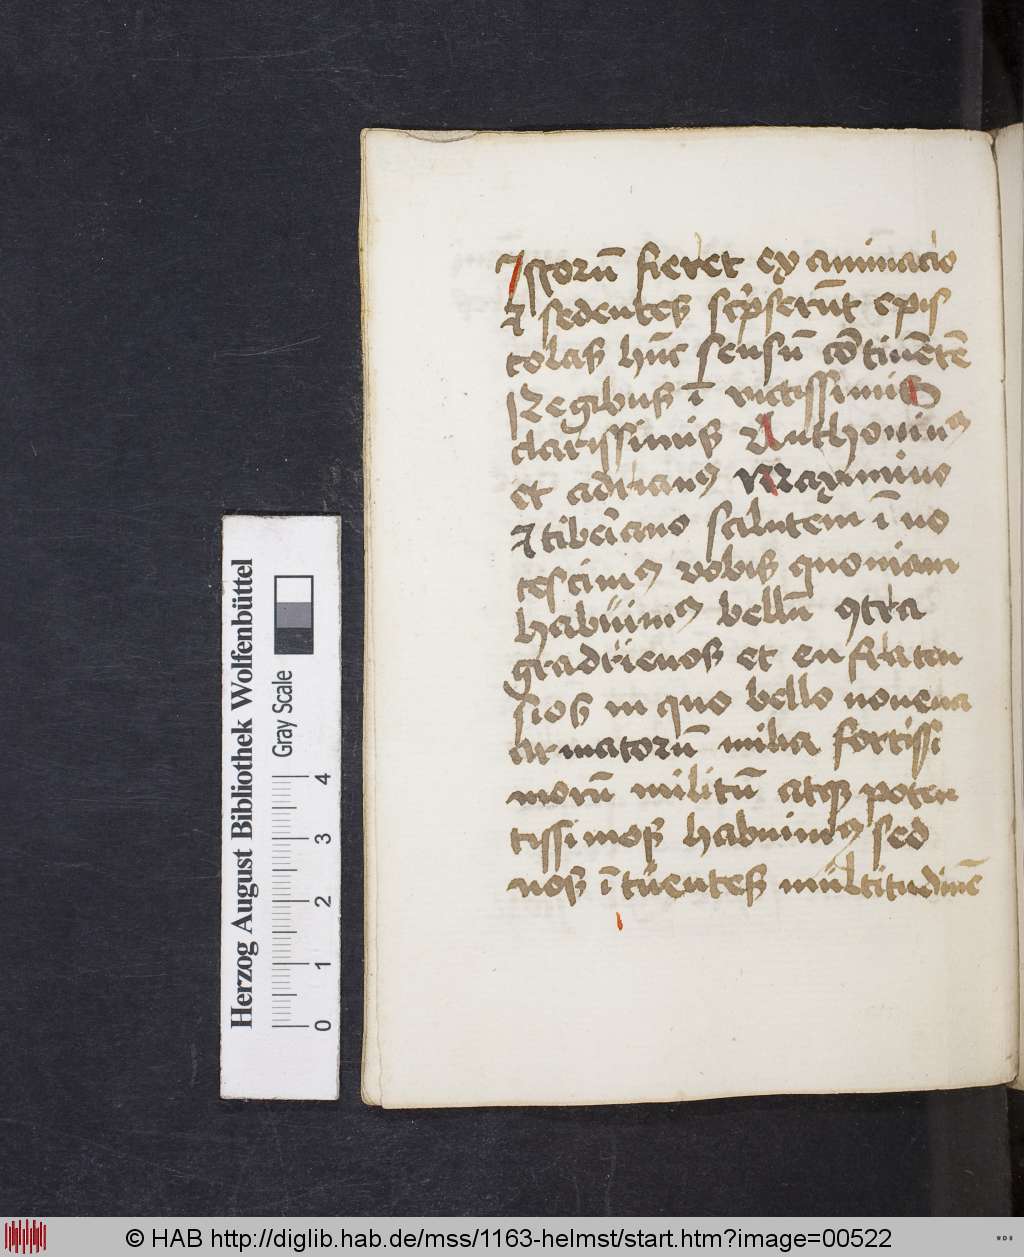 Istorū fieret examinacio
⁊ sedentes scp̄serūt epis
tolas hūc sensū cōtinētē
Regibus ī victissimis
clarissimis Anthoninꝰ
et adrianꝰ Maximino
⁊ tiberiano salutem ī no
tescimꝰ vobis quoniam
habuimꝰ bellū ꝯtra
gradrienos et eufraten
sios in quo bello novena
armatorū milia fortissi
morū militū atqꝫ poten
tissimos habuimꝰ sed
nos ītuentes multitudinē
Herzog August Bibliothek Wolfenbüttel
Gray Scale
0 1 2 3 4
© HAB http://diglib.hab.de/mss/1163-helmst/start.htm?image=00522